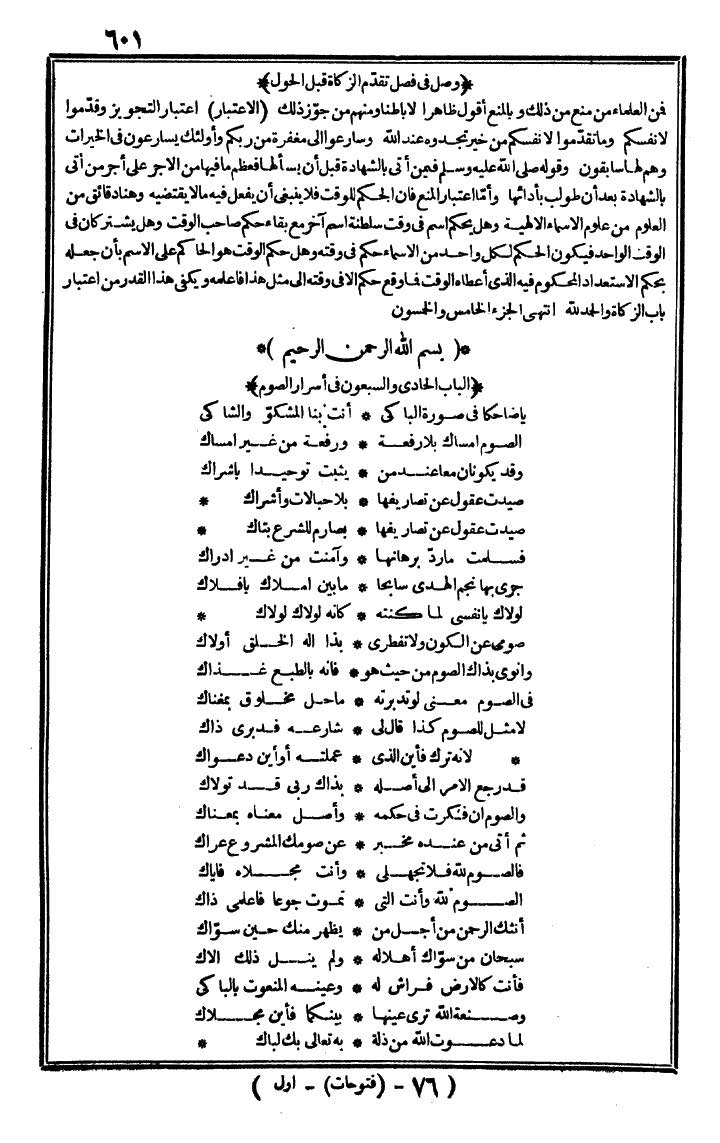 ٦٠١
﴿وصل فى فصل تقدّم الزكاة قبل الحول﴾
فمن العلماء من منع من ذلك وبالمنع أقول ظاهرا لا باطنا ومنهم من جوّز ذلك (الاعتبار) اعتبار التجويز وقدّموا
لانفسكم وما تقدّموا لانفسكم من خير تجدوه عند الله وسارعوا الى مغفرة من ربكم وأولئك يسارعون فى الخيرات
وهم لها سابقون وقوله صلى الله عليه وسلم فيمن أتى بالشهادة قبل أن يسألها فعظم ما فيها من الاجر على أجر من أتى
بالشهادة بعد أن طولب بأدائها وأمّا اعتبار المنع فان الحكم للوقت فلا ينبغى أن يفعل فيه ما لا يقتضيه وهنا دقائق من
العلوم من علوم الاسماء الالهية وهل يحكم اسم فى وقت سلطنة اسم آخر مع بقاء حكم صاحب الوقت وهل يشتركان فى
الوقت الواحد فيكون الحكم لكل واحد من الاسماء حكم فى وقته وهل حكم الوقت هو الحاكم على الاسم بأن جعله
يحكم الاستعداد المحكوم فيه الذى أعطاه الوقت فما وقع حكم الا فى وقته الى مثل هذا فاعلمه ويكفى هذا القدر من اعتبار
باب الزكاة والحمد لله انتهى الجزء الخامس والخمسون
*( بسم الله الرحمن الرحيم )*
﴿الباب الحادى والسبعون فى أسرار الصوم﴾
يا ضاحكا فى صورة الباكى * أنت بنا المشكوّ والشاكى
الصوم امساك بلا رفعة * ورفعة من غير امساك
وقد يكونان معا عند من * يثبت توحيدا باشراك
صيدت عقول عن تصاريفها * بلا حبالات وأشراك *
صيدت عقول عن تصاريفها * بصارم للشرع بتاك *
فسلمت ماردّ برهانها * وآمنت من غير ادراك
جرى بها نجم الهدى سابحا * ما بين املاك بافلاك
لولاك يا نفسى لما كنته * كانه لولاك لولاك *
صومى عن الكون ولا تفطرى * بذا اله الخلق أولاك
وانوى بذاك الصوم من حيث هو * فانه بالطبع غذاك
فى الصوم معنى لو تدبرته * ما حل مخلوق بمغناك
لا مثل للصوم كذا قال لى * شارعه فدبرى ذاك
* لانه ترك فأين الذى * عملته أو أين دعواك
قد رجع الامر الى أصله * بذاك ربى قد تولاك
والصوم ان فكرت فى حكمه * وأصل معناه بمعناك
ثم أتى من عنده مخبر * عن صومك المشروع عراك
فالصوم لله فلا تجهلى * وأنت مجلاه فاياك
الصوم لله وأنت التى * تموت جوعا فاعلمى ذاك
أنثك الرحمن من أجل من * يظهر منك حين سوّاك
سبحان من سوّاك أهلا له * ولم ينل ذلك الاك
فأنت كالارض فراش له * وعينه المنعوت بالباكى
وصنعة الله ترى عينها * بينكما فأين مجلاك
لما دعوت الله من ذلة * به تعالى بك لباك *
( ٧٦ - (فتوحات) - اول )